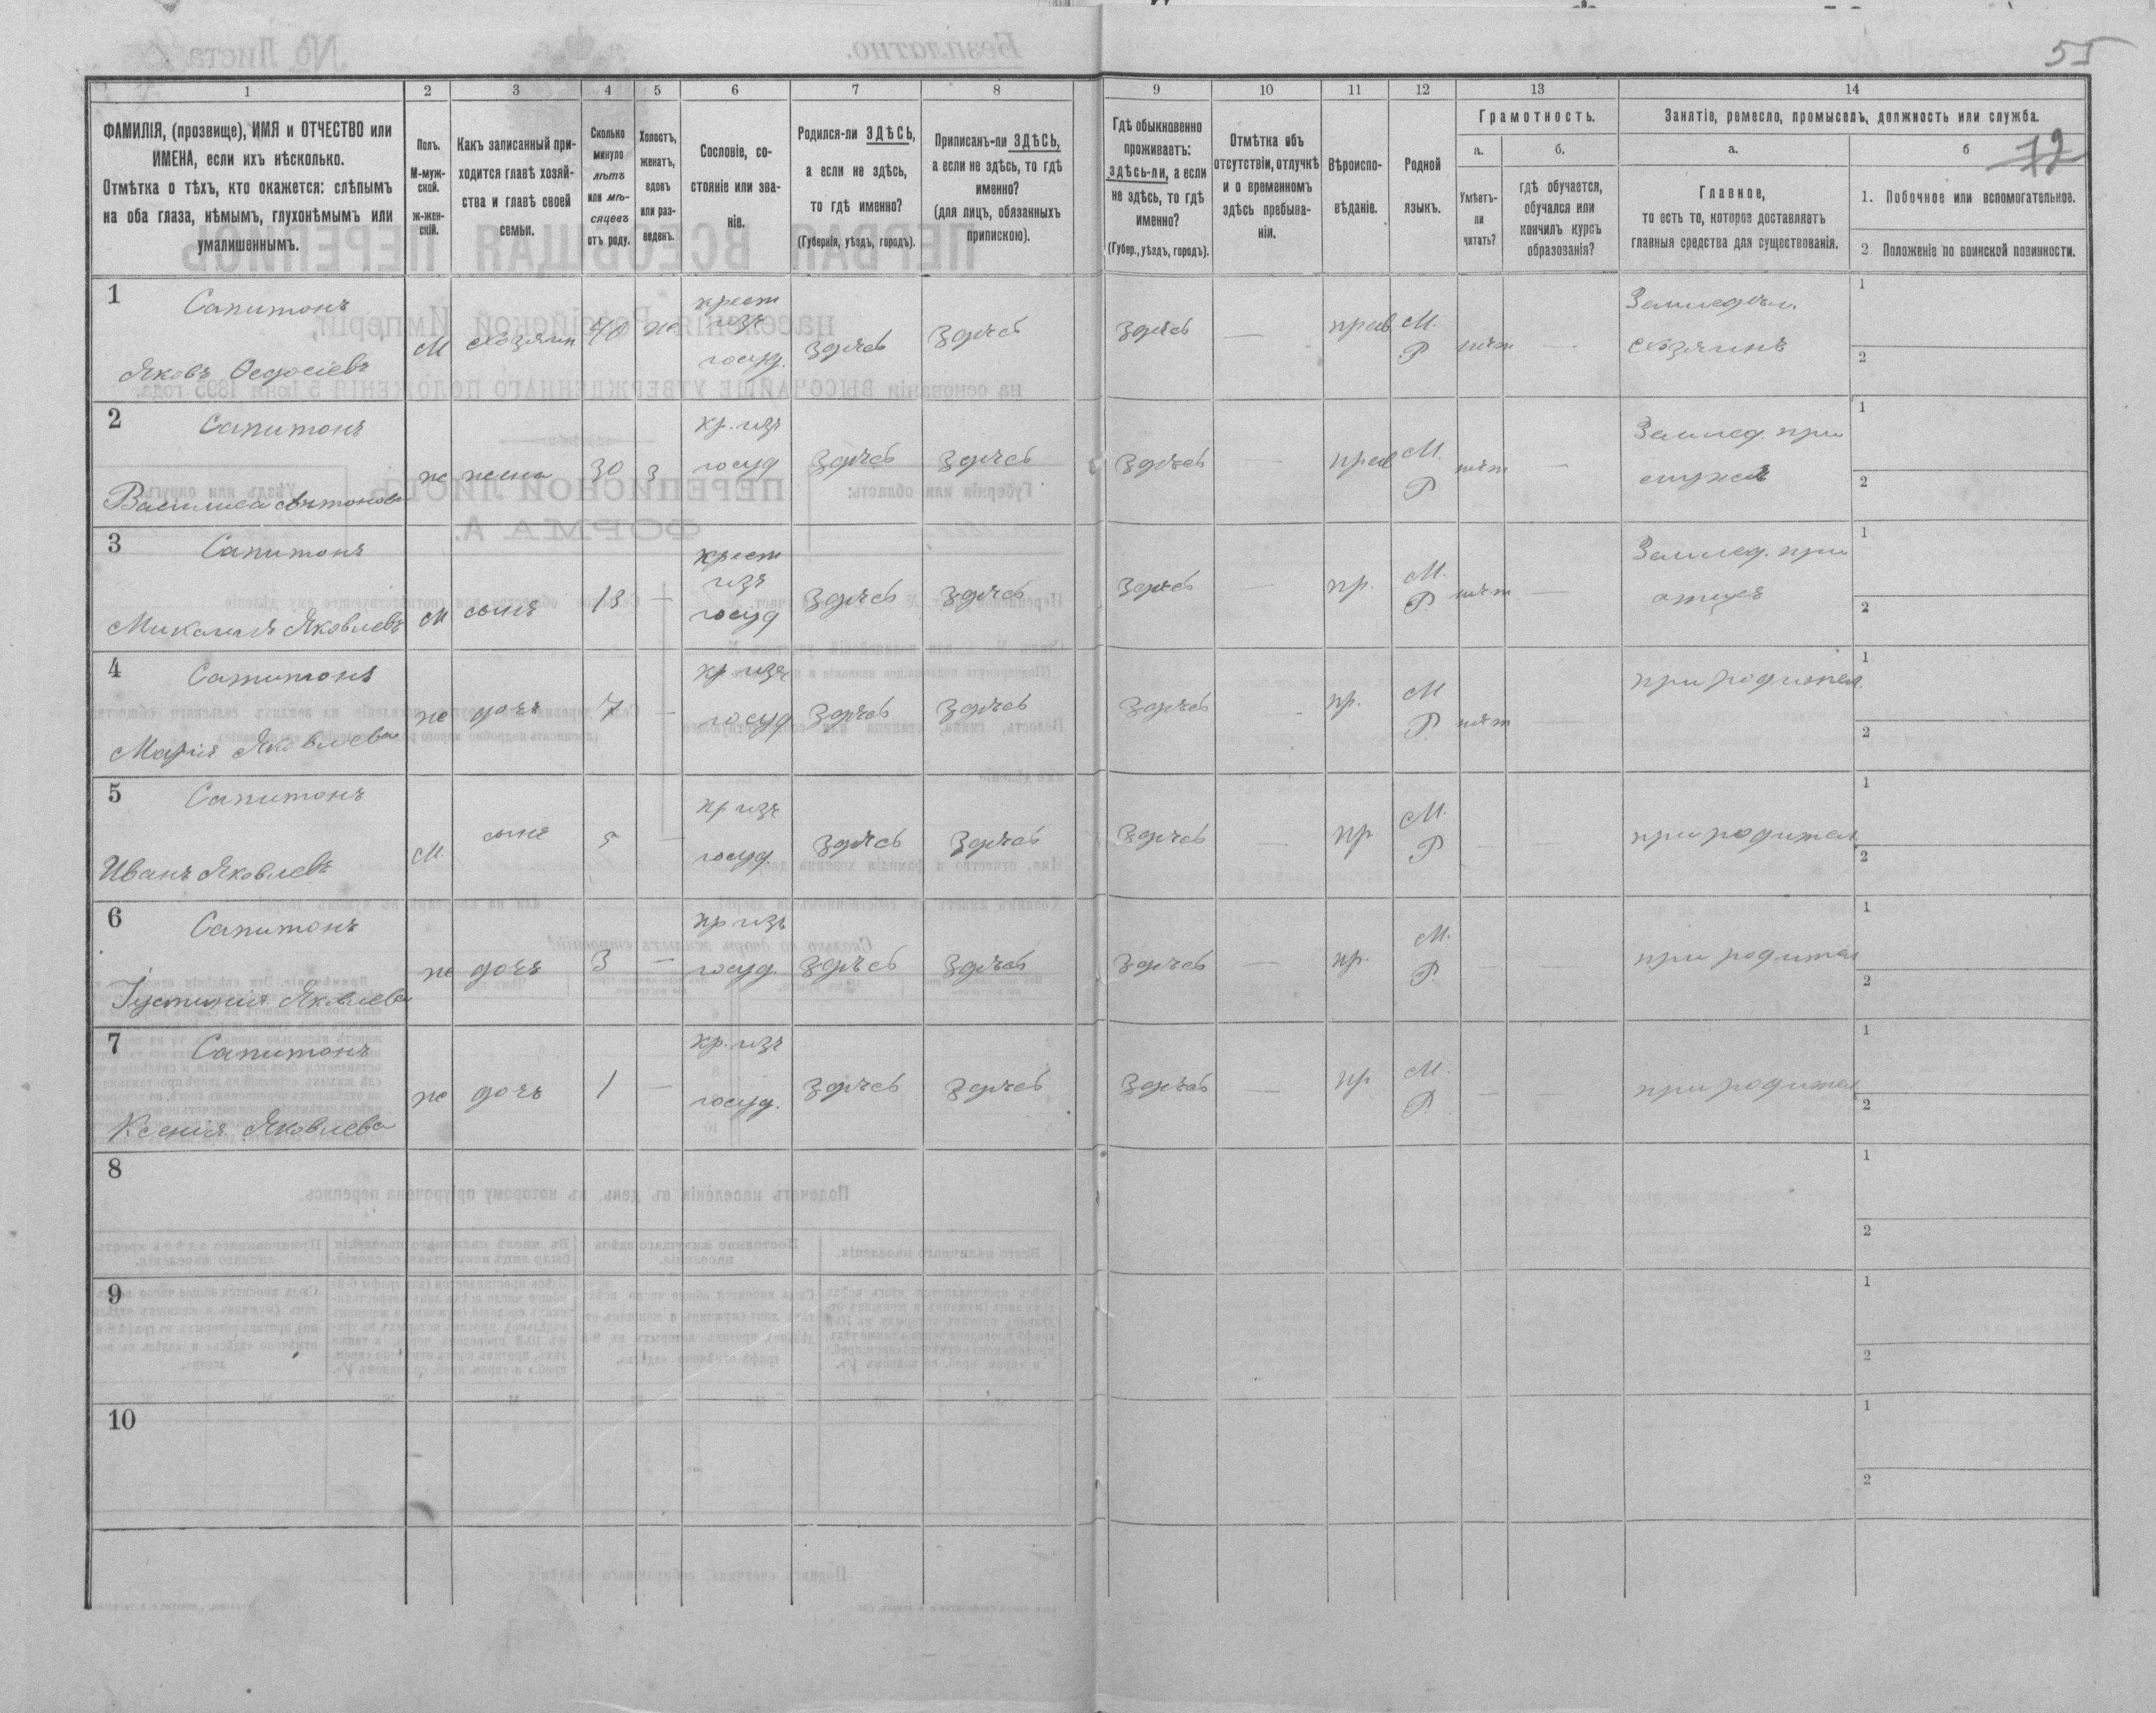 55
1 2 3 4 5 6 7 8 9 10 11 12 13 14
ФАМИЛІЯ, (прозвище), ИМЯ и ОТЧЕСТВО или
ИМЕНА, если ихъ нѣсколько.
Отмѣтка о тѣхъ, кто окажется: слѣпымъ
на оба глаза, нѣмымъ, глухонѣмымъ или
умалишеннымъ.
Полъ.
М-муж-
ской.
ж-жен-
скій.
Какъ записанный при-
ходится главѣ хозяй-
ства и главѣ своей
семьи.
Сколько
минуло
лѣтъ
или мѣ-
сяцевъ
отъ роду.
Холостъ,
женатъ,
вдовъ
или раз-
веденъ.
Сословіе, со-
стояніе или зва-
ніе.
Родился-ли ЗДѢСЬ,
а если не здѣсь,
то гдѣ именно?
(Губернія, уѣздъ, городъ).
Приписанъ-ли ЗДѢСЬ,
а если не здѣсь, то гдѣ
именно?
(для лицъ, обязанныхъ
припискою).
Гдѣ обыкновенно
проживаетъ:
здѣсь-ли, а если
не здѣсь, то гдѣ
именно?
(Губер., уѣздъ, городъ).
Отмѣтка объ
отсутствіи, отлучкѣ
и о временномъ
здѣсь пребыва-
ніи.
Вѣроиспо-
вѣданіе.
Родной
языкъ.
Грамотность.
а.
Умѣетъ-
ли
читать?
б.
гдѣ обучается,
обучался или
кончилъ курсъ
образованія?
Занятіе, ремесло, промыселъ, должность или служба.
а.
Главное,
то есть то, которое доставляетъ
главныя средства для существованія.
б
72
1. Побочное или вспомогательное.
2. Положеніе по воинской повинности.
1
Сапитонъ
Яковъ Ѳедосіевъ
М
хозяин
40
ж.
крест
изъ
госуд.
здѣсь
здѣсь
здѣсь
—
прав
М.
Р
нѣт
—
Земледѣл.
хозяинъ
1
2
2
Сапитонъ
Василиса Антонова
ж
жена
30
з
кр. изъ
госуд
здѣсь
здѣсь
здѣсь
—
прав
М.
Р
нѣт
—
Землед. при
мужѣ
1
2
3
Сапитонъ
Михаилъ Яковлевъ
М
сынъ
13
—
крест
изъ
госуд
здѣсь
здѣсь
здѣсь
—
пр.
М.
Р
нѣт
—
Землед. при
отцѣ
1
2
4
Сапитонъ
Марія Яковлева
ж
дочь
7
—
кр изъ
госуд
здѣсь
здѣсь
здѣсь
—
пр.
М
Р
нѣт
при родител.
1
2
5
Сапитонъ
Иванъ Яковлевъ
М.
сынъ
5
—
кр изъ
госуд.
здѣсь
здѣсь
здѣсь
—
пр
М.
Р
—
при родител
1
2
6
Сапитонъ
Іустинія Яковлева
ж
дочь
3
—
кр изъ
госуд.
здѣсь
здѣсь
здѣсь
—
пр.
М.
Р
—
—
при родител
1
2
7
Сапитонъ
Ксенія Яковлева
ж
дочь
1
—
кр. изъ
госуд.
здѣсь
здѣсь
здѣсь
—
пр
М.
Р
—
—
при родител
1
2
8
1
2
9
1
2
10
1
2